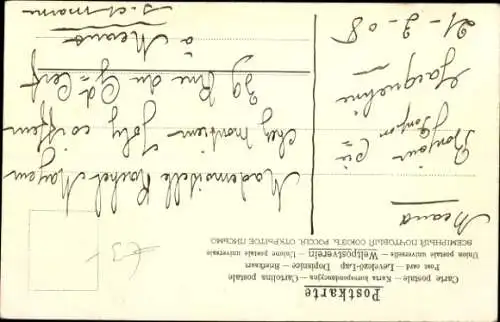 Postkarte
Carte postale — Karta korespondencyjna — Cartolina postale
Post card — Levelező-Lap — Dopisnice — Briefkaart
Union postale universelle — Weltpostverein — Unione postale universale
ВСЕМІРНЫЙ ПОЧТОВЫЙ СОЮЗЪ. РОССІЯ. ОТКРЫТОЕ ПИСЬМО.
Meaux
Bonjour
Bonjour
Jacqueline
21-3-08
Mademoiselle Rachel Mayem
chez Monsieur Joly coiffeur
39 Rue du Gd Cerf
à Meaux
S.et marne
£3-